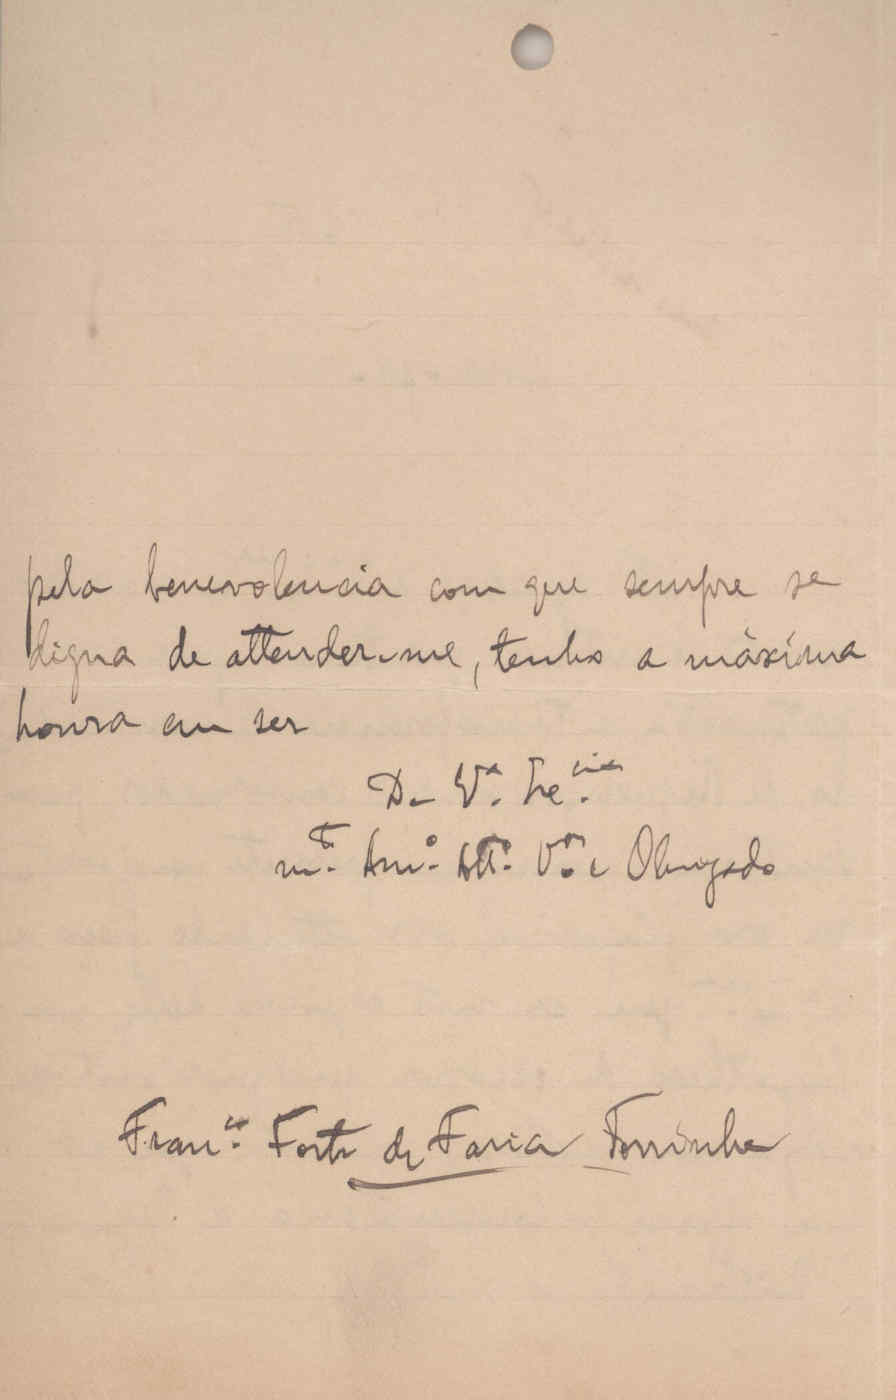 pela benevolencia com que sempre se
digna de attender-me, tenho a màxima
honra em ser
De V.ª Ex.cia
m.to Am.º Att.º V.or e Obrigado
Fran.co Forte de Faria Torrinha